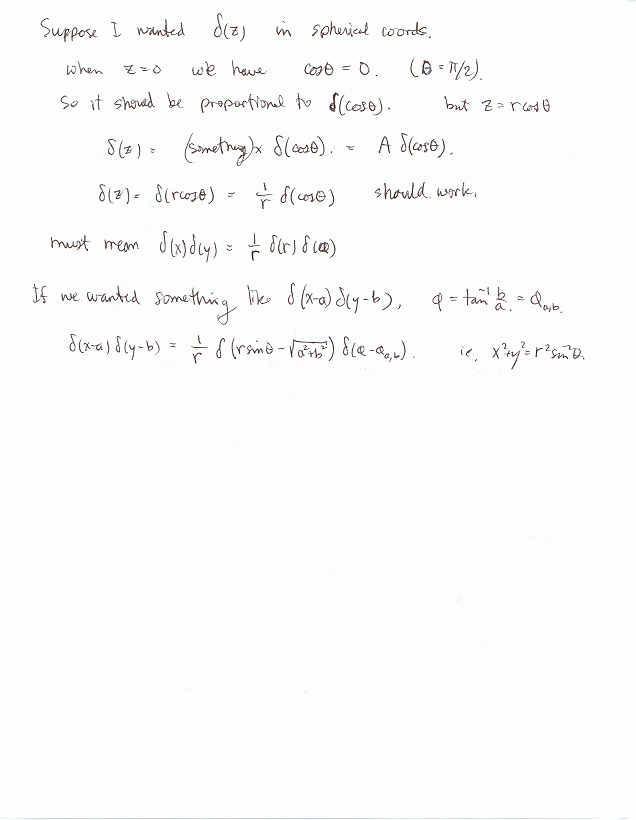 Suppose I wanted δ(z) in spherical coords.
when z=0 we have cosθ = 0. (θ = π/2).
So it should be proportional to δ(cosθ). but z = r cosθ
δ(z) = (something)x δ(cosθ). = A δ(cosθ).
δ(z) = δ(rcosθ) = 1/r δ(cosθ) should work.
must mean δ(x)δ(y) = 1/r δ(r) δ(φ)
If we wanted something like δ(x-a) δ(y-b), φ = tan⁻¹ b/a. = φ_a,b.
δ(x-a) δ(y-b) = 1/r δ(r sinθ - √(a²+b²)) δ(φ-φ_a,b). ie, x²+y² = r² sin²θ.